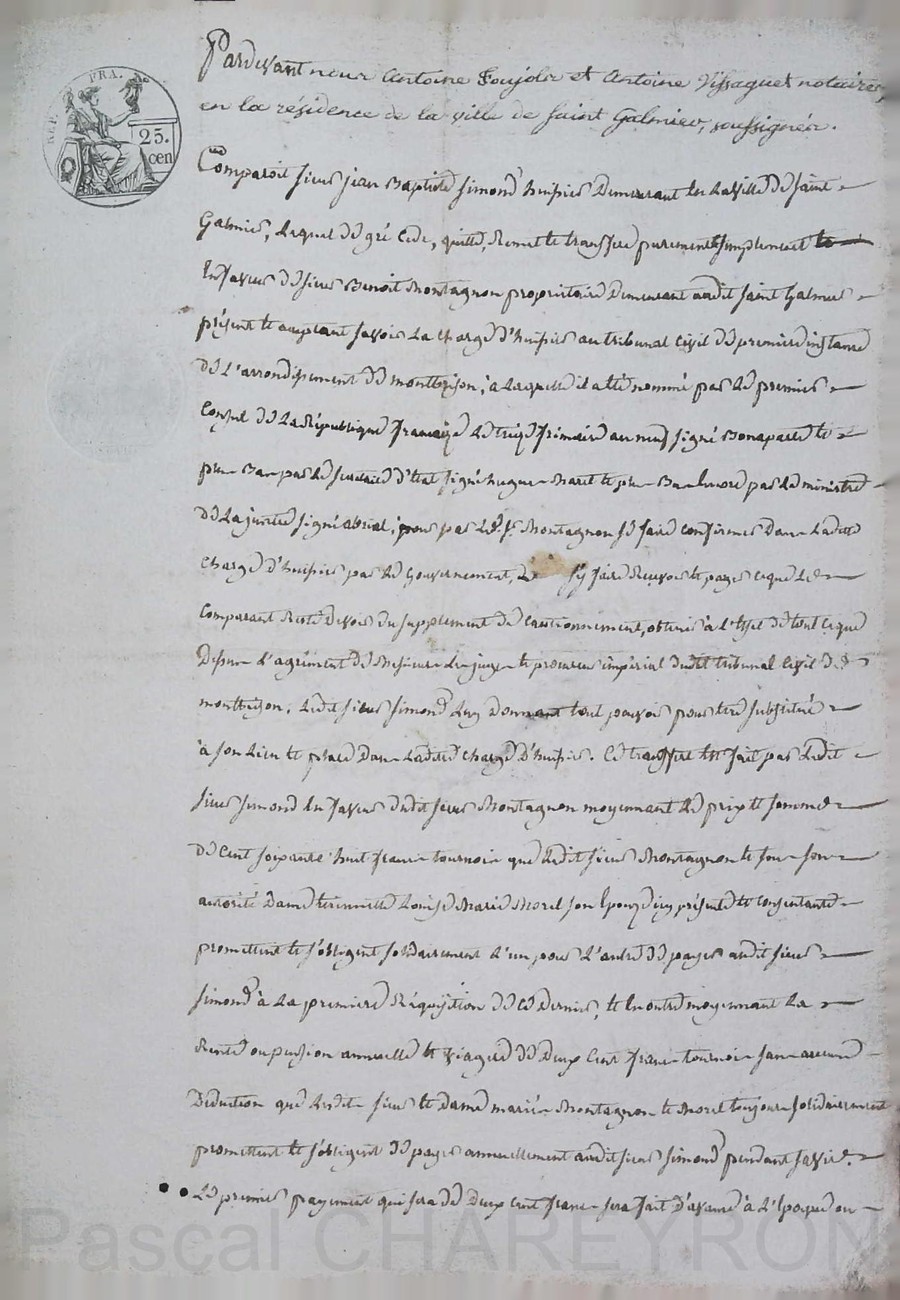 REP. FRA.
25.
cen
Pardevant nous Antoine Foujolx et Antoine Vissaguet notaires,
en la résidence de la ville de Saint Galmier, soussignés.
Comparoit sieur jean Baptiste Simond huissier Demeurant En La ville de saint
Galmier, Lequel de gré Cede, quitte, Remet et transfere purement et simplement
En faveur de sieur Benoit Montagnon proprietaire Demeurant audit saint Galmier
présent et acceptant savoir La charge d'huissier au tribunal civil de premiere instance
De L'arrondissement de montbrison, à Laquelle il a été nommé par Le premier
Consul de La République francaise Le treize frimaire an neuf signé Bonaparte et
plus Bas par Le secretaire d'Etat signé hugues Maret et plus Bas Encore par Le ministre
De La justice signé abrial, pour par Le Sr. Montagnon se faire confirmer Dans Ladite
Charge d'huissier par Le Gouvernement, s'y faire Recevoir et payer ce que Le
Comparant Reste Devoir du supplement de Cautionnement, obtenir à L'effet de tout ce que
Dessus L'agrément de Messieurs Les juges et procureur impérial dudit tribunal civil de
montbrison, Ledit sieur Simond Luy Donnant tout pouvoir pour etre substitué
à son Lieu et place Dans Ladite charge D'huissier. Ce transfert Est fait par Ledit
sieur Simond En faveur dudit sieur Montagnon moyennant Le prix et somme
De Cent soixante huit francs tournois que Ledit sieur Montagnon et sous son
autorité Dame Etiennette Louise Marie Morel son Epouse icy présente et consentante
promettent et s'obligent solidairement L'un pour L'autre de payer audit sieur
Simond à La premiere Réquisition de ce Dernier, et En outre moyennant La
Rente ou pension annuelle et viagere de Deux Cent francs tournois sans aucune
Déduction que Lesdits sieur et dame mariés Montagnon et Morel toujours solidairement
promettent et s'obligent de payer annuellement audit sieur Simond pendant sa vie.
Le premier payement qui sera de Deux Cent francs sera fait D'avance à L'Epoque ou
Pascal CHAREYRON